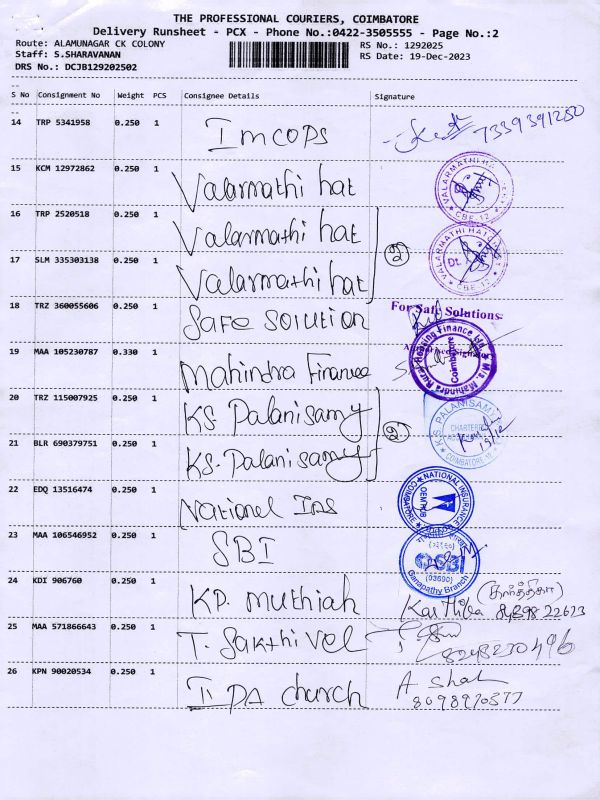 THE PROFESSIONAL COURIERS, COIMBATORE
Delivery Runsheet - PCX - Phone No.:0422-3505555 - Page No.:2
Route: ALAMUNAGAR CK COLONY RS No.: 1292025
Staff: S.SHARAVANAN RS Date: 19-Dec-2023
DRS No.: DCJB129202502
S No Consignment No Weight PCS Consignee Details Signature
14 TRP 5341958 0.250 1 Imcops 7339391280
15 KCM 12972862 0.250 1 Valarmathi hat VALARMATHI HA CBE-12
16 TRP 2520518 0.250 1 Valarmathi hat VALARMATHI HAT
17 SLM 335303138 0.250 1 Valarmathi hat Dt. CBE-12
2
18 TRZ 360055606 0.250 1 Safe Solution For Safe Solutions
19 MAA 105230787 0.330 1 Mahindra Finance M/s. Mahindra Rural Housing Finance Ltd. Coimbatore
20 TRZ 115007925 0.250 1 KS. Palanisamy K.S. PALANISAMY
21 BLR 690379751 0.250 1 KS. Palanisamy CHARTERED COIMBATORE 19/12
2
22 EDQ 13516474 0.250 1 National Ins NATIONAL INSURANCE COIMBATORE OEM HUB
23 MAA 106546952 0.250 1 SBI SBI (03690) Ganapathy Branch
24 KDI 906760 0.250 1 KP. Muthiah Karthika (கார்த்திகா) 8439822623
25 MAA 571866643 0.250 1 T. Sakthi vel 8248230496
26 KPN 90020534 0.250 1 I PA church A Shah 8098970377